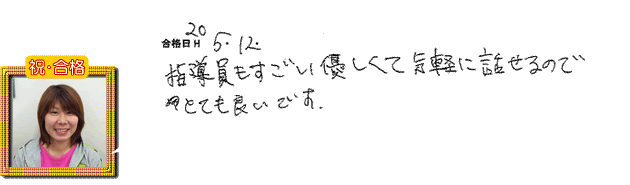 合格日 H 20 5.12.
祝・合格
指導員もすごい優しくて気軽に話せるので
とても良いです.